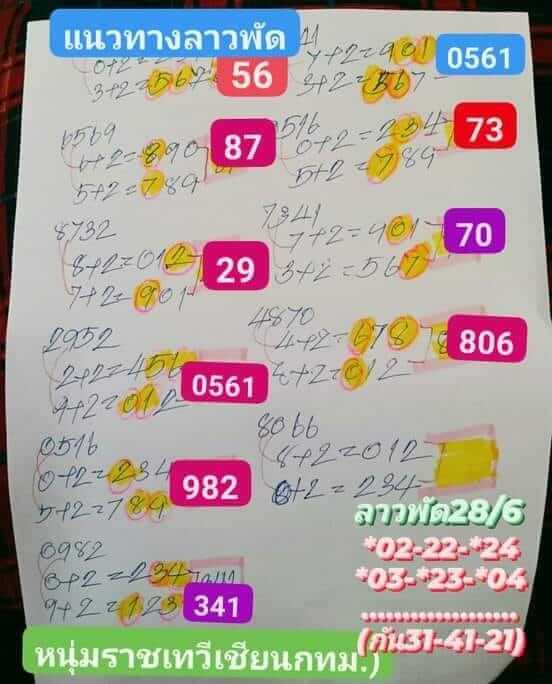 แนวทางลาวพัด
0+2=23
3+2=567
56
7+2=901
3+2=567
0561
6569
6+2=890
5+2=789
87
0516
0+2=234
5+2=789
73
8732
8+2=012
7+2=901
29
7341
7+2=901
3+2=567
70
2952
2+2=456
9+2=012
0561
4870
4+2=678
8+2=012
806
0516
0+2=234
5+2=789
982
8066
8+2=012
0+2=234
0982
0+2=234
9+2=123
341
ลาวพัด28/6
*02-22-*24
*03-*23-*04
....................
(กัน31-41-21)
หนุ่มราชเทวีเซียนกทม.)